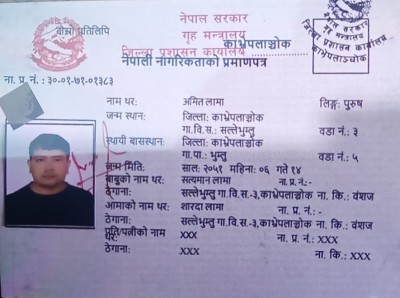 दोस्रो प्रतिलिपि
नेपाल सरकार
गृह मन्त्रालय
जिल्ला प्रशासन कार्यालय काभ्रेपलाञ्चोक
नेपाली नागरिकताको प्रमाणपत्र
नेपाल सरकार
गृह मन्त्रालय
जिल्ला प्रशासन कार्यालय
काभ्रेपलाञ्चोक
ना. प्र. नं. : ३०-०१-७१-०१३८३
नाम थर: अमित लामा लिङ्ग: पुरुष
जन्म स्थान: जिल्ला: काभ्रेपलाञ्चोक
गा.वि.स.: सल्लेभुम्लु वडा नं.: ३
स्थायी बासस्थान: जिल्ला: काभ्रेपलाञ्चोक
गा.पा.: भुम्लु वडा नं.: ५
जन्म मिति: साल: २०५१ महिना: ०६ गते १४
बाबुको नाम थर: सत्यमान लामा ना. प्र.नं.:-
ठेगाना: सल्लेभुम्लु गा.वि.स.-३,काभ्रेपलाञ्चोक ना. कि.: वंशज
आमाको नाम थर: शारदा लामा ना. प्र.नं.: -
ठेगाना: सल्लेभुम्लु गा.वि.स.-३,काभ्रेपलाञ्चोक ना. कि.: वंशज
पति/पत्नीको नाम थर: XXX ना. प्र.नं.: XXX
ठेगाना: XXX ना. कि.: XXX